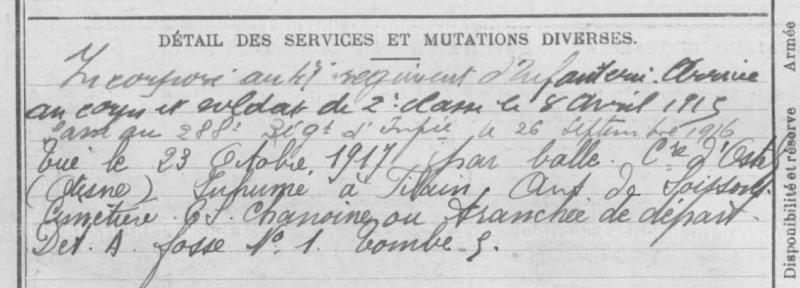 DÉTAIL DES SERVICES ET MUTATIONS DIVERSES.
Incorporé au régiment d'Infanterie. Arrivé
au corps et soldat de 2e classe le 8 avril 1915
Passé au 288e Régt d'Infie le 26 Septembre 1916
Tué le 23 Octobre 1917 par balle. Cne d'Ostel
(Aisne) Inhumé à Arrt de Soissons
Cimetière Chanoine ou tranchée de départ.
Det. A. fosse No. 1. Tombe 5.
Disponibilité et réserve
Armée